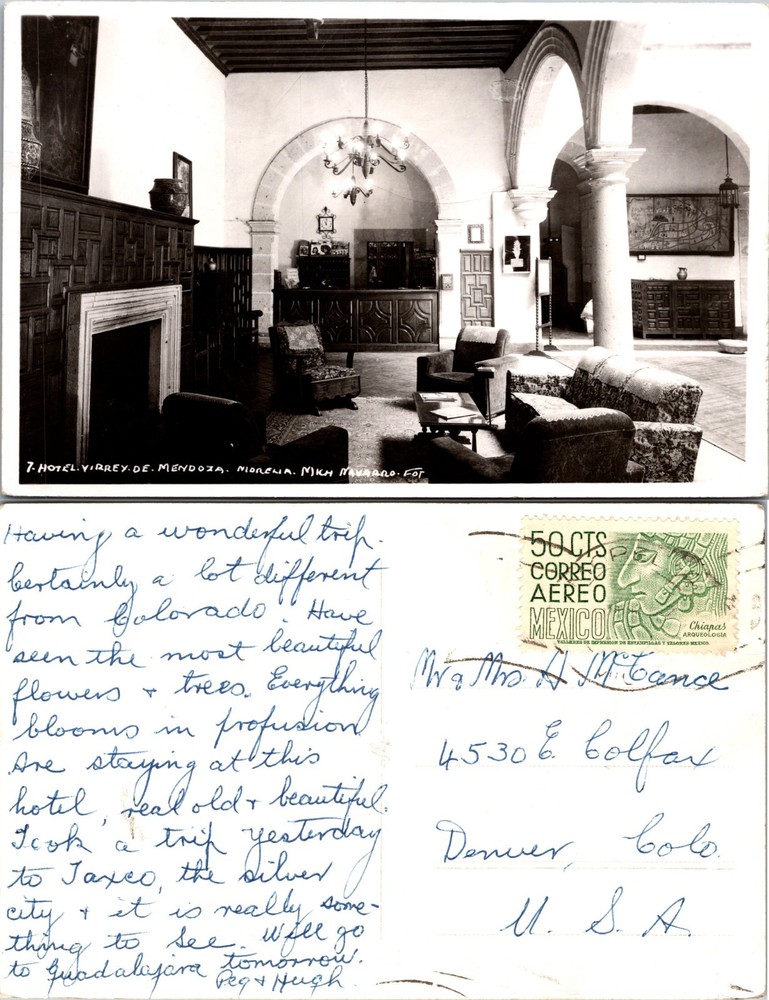 7. HOTEL. VIRREY. DE. MENDOZA. MORELIA. MICH NAVARRO. FOT
Having a wonderful trip.
Certainly a lot different
from Colorado. Have
seen the most beautiful
flowers & trees. Everything
blooms in profusion
Are staying at this
hotel, real old & beautiful.
Took a trip yesterday
to Taxco, the silver
city & it is really some-
thing to see. Will go
to Guadalajara tomorrow.
Peg & Hugh.
50 CTS
CORREO
AEREO
MEXICO
Chiapas
ARQUEOLOGIA
TALLERES DE IMPRESION DE ESTAMPILLAS Y VALORES-MEXICO.
Mr & Mrs H McCance
4530 E. Colfax
Denver, Colo.
U. S. A.